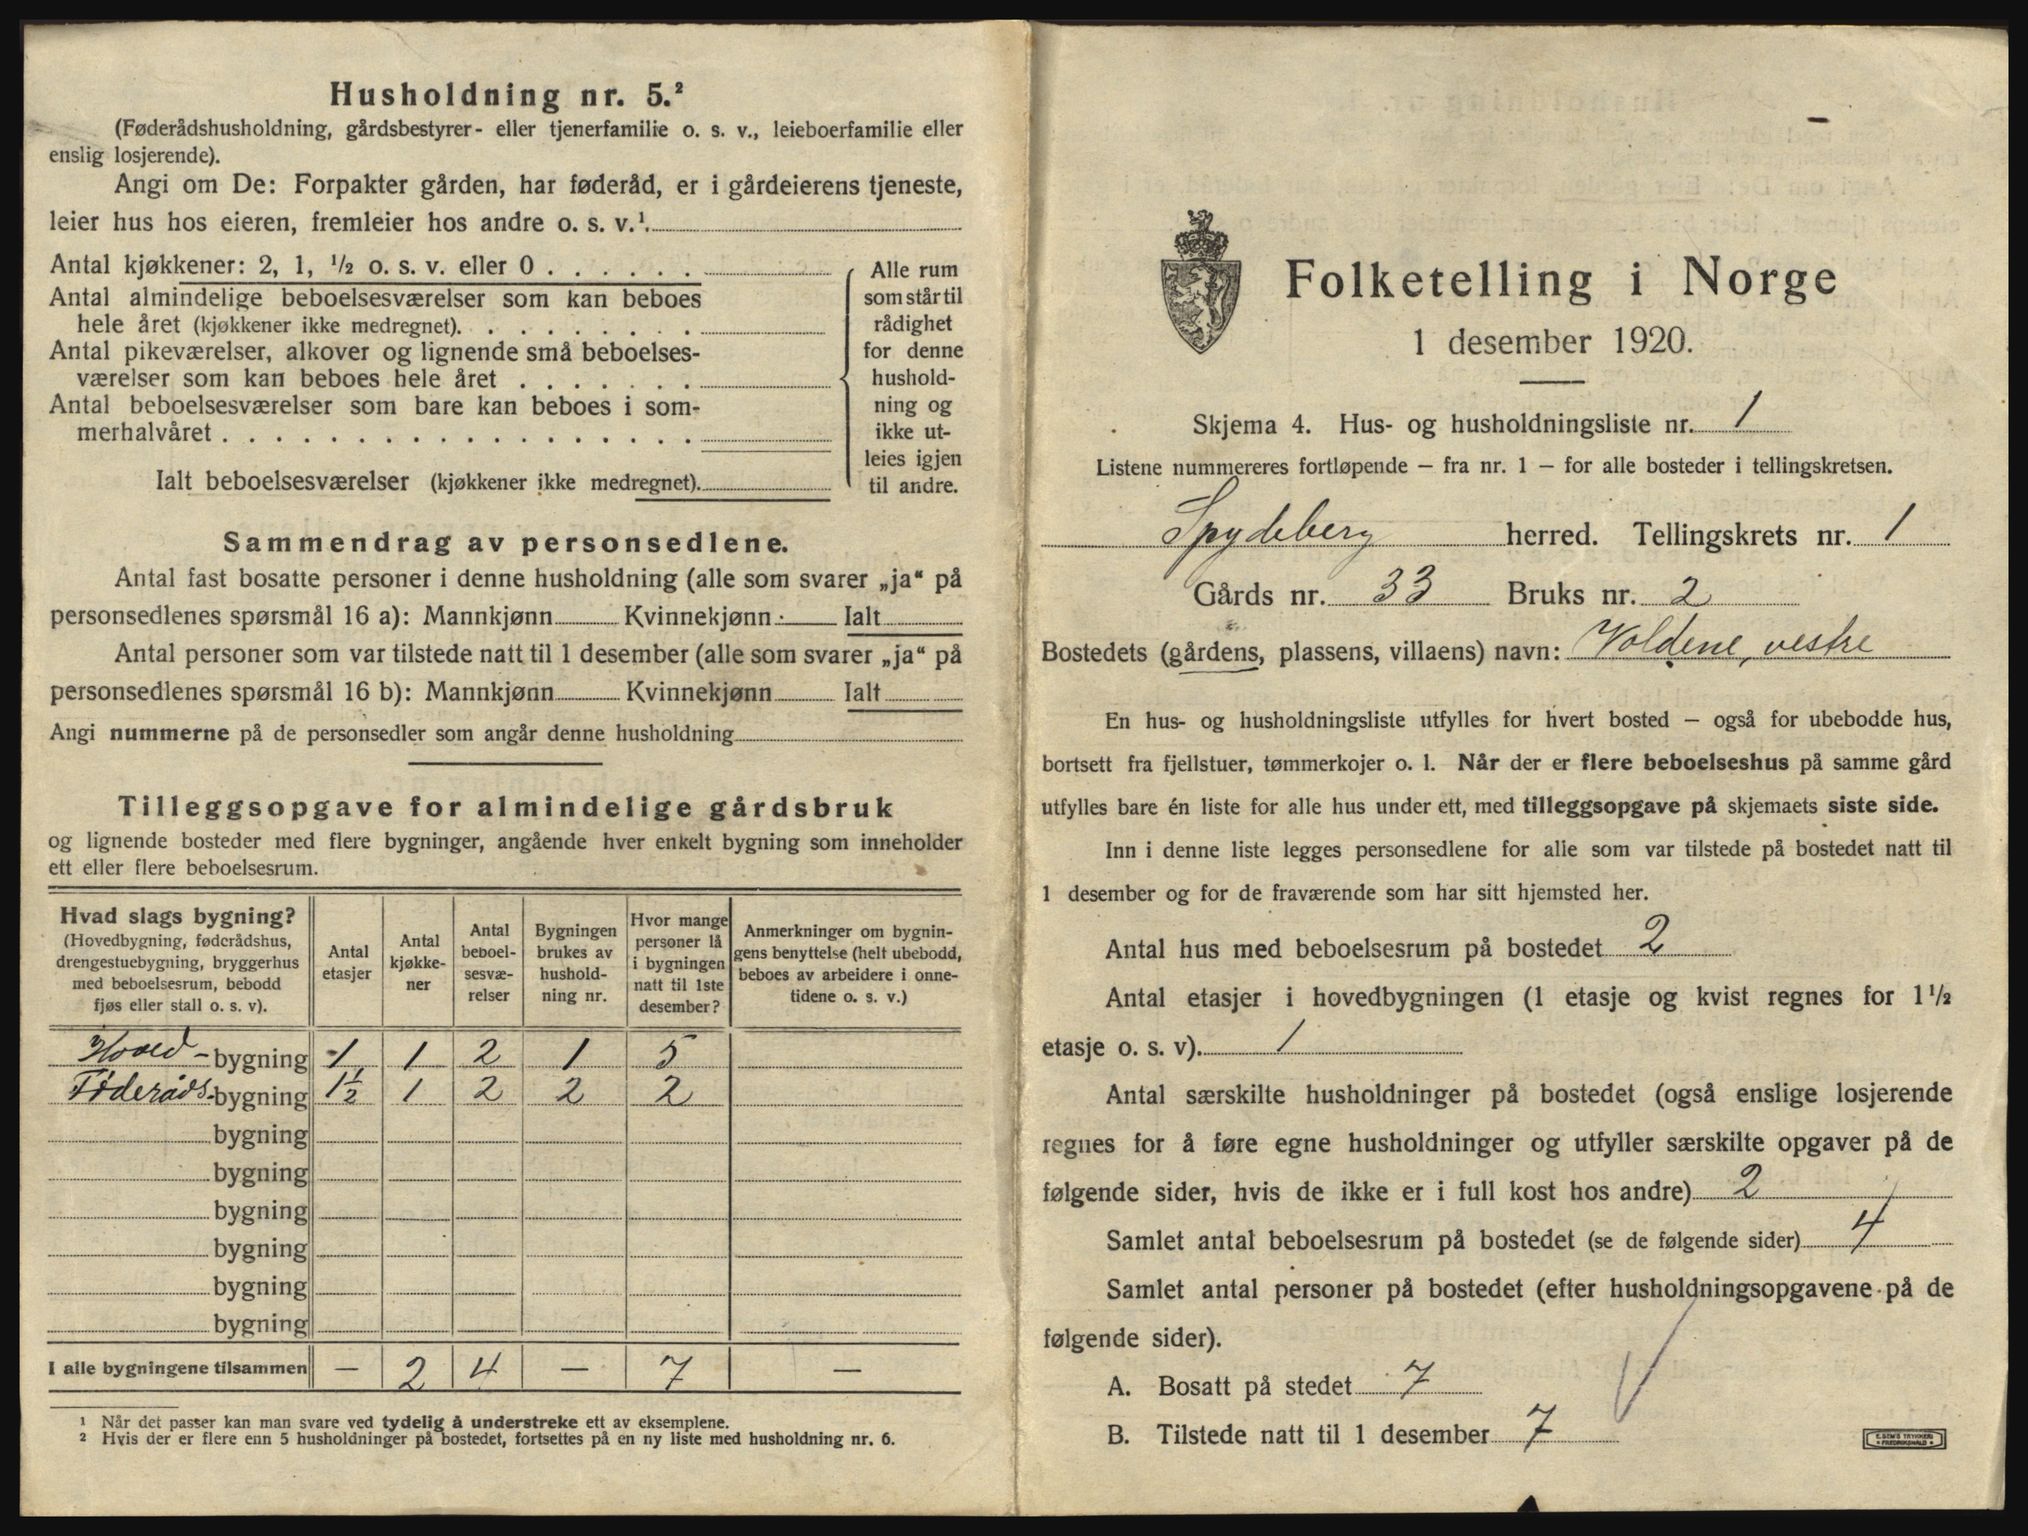 Husholdning nr. 5.²
(Føderådshusholdning, gårdsbestyrer- eller tjenerfamilie o. s. v., leieboerfamilie eller
enslig losjerende).
Angi om De: Forpakter gården, har føderåd, er i gårdeierens tjeneste,
leier hus hos eieren, fremleier hos andre o. s. v.¹.
Antal kjøkkener: 2, 1, ½ o. s. v. eller 0 . . . . . .
Antal almindelige beboelsesværelser som kan beboes
hele året (kjøkkener ikke medregnet). . . . . . . . .
Antal pikeværelser, alkover og lignende små beboelses-
værelser som kan beboes hele året . . . . . . .
Antal beboelsesværelser som bare kan beboes i som-
merhalvåret . . . . . . . . . . . . . . . . . .
Ialt beboelsesværelser (kjøkkener ikke medregnet).
Alle rum
som står til
rådighet
for denne
hushold-
ning og
ikke ut-
leies igjen
til andre.
Sammendrag av personsedlene.
Antal fast bosatte personer i denne husholdning (alle som svarer „ja“ på
personsedlenes spørsmål 16 a): Mannkjønn Kvinnekjønn Ialt
Antal personer som var tilstede natt til 1 desember (alle som svarer „ja“ på
personsedlenes spørsmål 16 b): Mannkjønn Kvinnekjønn Ialt
Angi nummerne på de personsedler som angår denne husholdning
Tilleggsopgave for almindelige gårdsbruk
og lignende bosteder med flere bygninger, angående hver enkelt bygning som inneholder
ett eller flere beboelsesrum.
Hvad slags bygning?
(Hovedbygning, føderådshus,
drengestuebygning, bryggerhus
med beboelsesrum, bebodd
fjøs eller stall o. s. v).
Antal
etasjer
Antal
kjøkke-
ner
Antal
beboel-
sesvæ-
relser
Bygningen
brukes av
hushold-
ning nr.
Hvor mange
personer lå
i bygningen
natt til 1ste
desember?
Anmerkninger om bygnin-
gens benyttelse (helt ubebodd,
beboes av arbeidere i onne-
tidene o. s. v.)
Hoved-bygning 1 1 2 1 5
Føderåds-bygning 1½ 1 2 2 2
bygning
bygning
bygning
bygning
bygning
bygning
I alle bygningene tilsammen — 2 4 — 7 —
¹ Når det passer kan man svare ved tydelig å understreke ett av eksemplene.
² Hvis der er flere enn 5 husholdninger på bostedet, fortsettes på en ny liste med husholdning nr. 6.
Folketelling i Norge
1 desember 1920.
Skjema 4. Hus- og husholdningsliste nr. 1
Listene nummereres fortløpende – fra nr. 1 – for alle bosteder i tellingskretsen.
Spydeberg herred. Tellingskrets nr. 1
Gårds nr. 33 Bruks nr. 2
Bostedets (gårdens, plassens, villaens) navn: Voldene, vestre
En hus- og husholdningsliste utfylles for hvert bosted – også for ubebodde hus,
bortsett fra fjellstuer, tømmerkojer o. l. Når der er flere beboelseshus på samme gård
utfylles bare én liste for alle hus under ett, med tilleggsopgave på skjemaets siste side.
Inn i denne liste legges personsedlene for alle som var tilstede på bostedet natt til
1 desember og for de fraværende som har sitt hjemsted her.
Antal hus med beboelsesrum på bostedet 2
Antal etasjer i hovedbygningen (1 etasje og kvist regnes for 1½
etasje o. s. v). 1
Antal særskilte husholdninger på bostedet (også enslige losjerende
regnes for å føre egne husholdninger og utfyller særskilte opgaver på de
følgende sider, hvis de ikke er i full kost hos andre) 2
Samlet antal beboelsesrum på bostedet (se de følgende sider) 4
Samlet antal personer på bostedet (efter husholdningsopgavene på de
følgende sider).
A. Bosatt på stedet 7
B. Tilstede natt til 1 desember 7
E. SEM'S TRYKKERI
FREDRIKSHALD